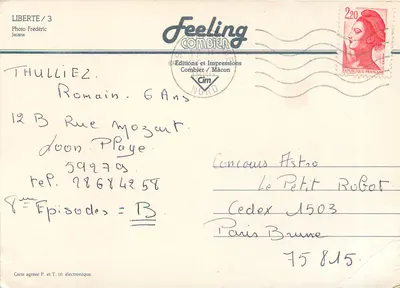 LIBERTE / 3
Photo Frédéric
Jacana
Feeling
COMBIER
Editions et Impressions
Combier / Mâcon
Cim
NORD
2,20
THULLIEZ
Romain. 6 Ans
12 B Rue Mozart
Loon Plage
59279
tel. 28684258
8ème Episodes = B
Concours Astro
Le Petit Robot
Cedex 1503
Paris Brune
75815
Carte agréée P. et T. tri électronique